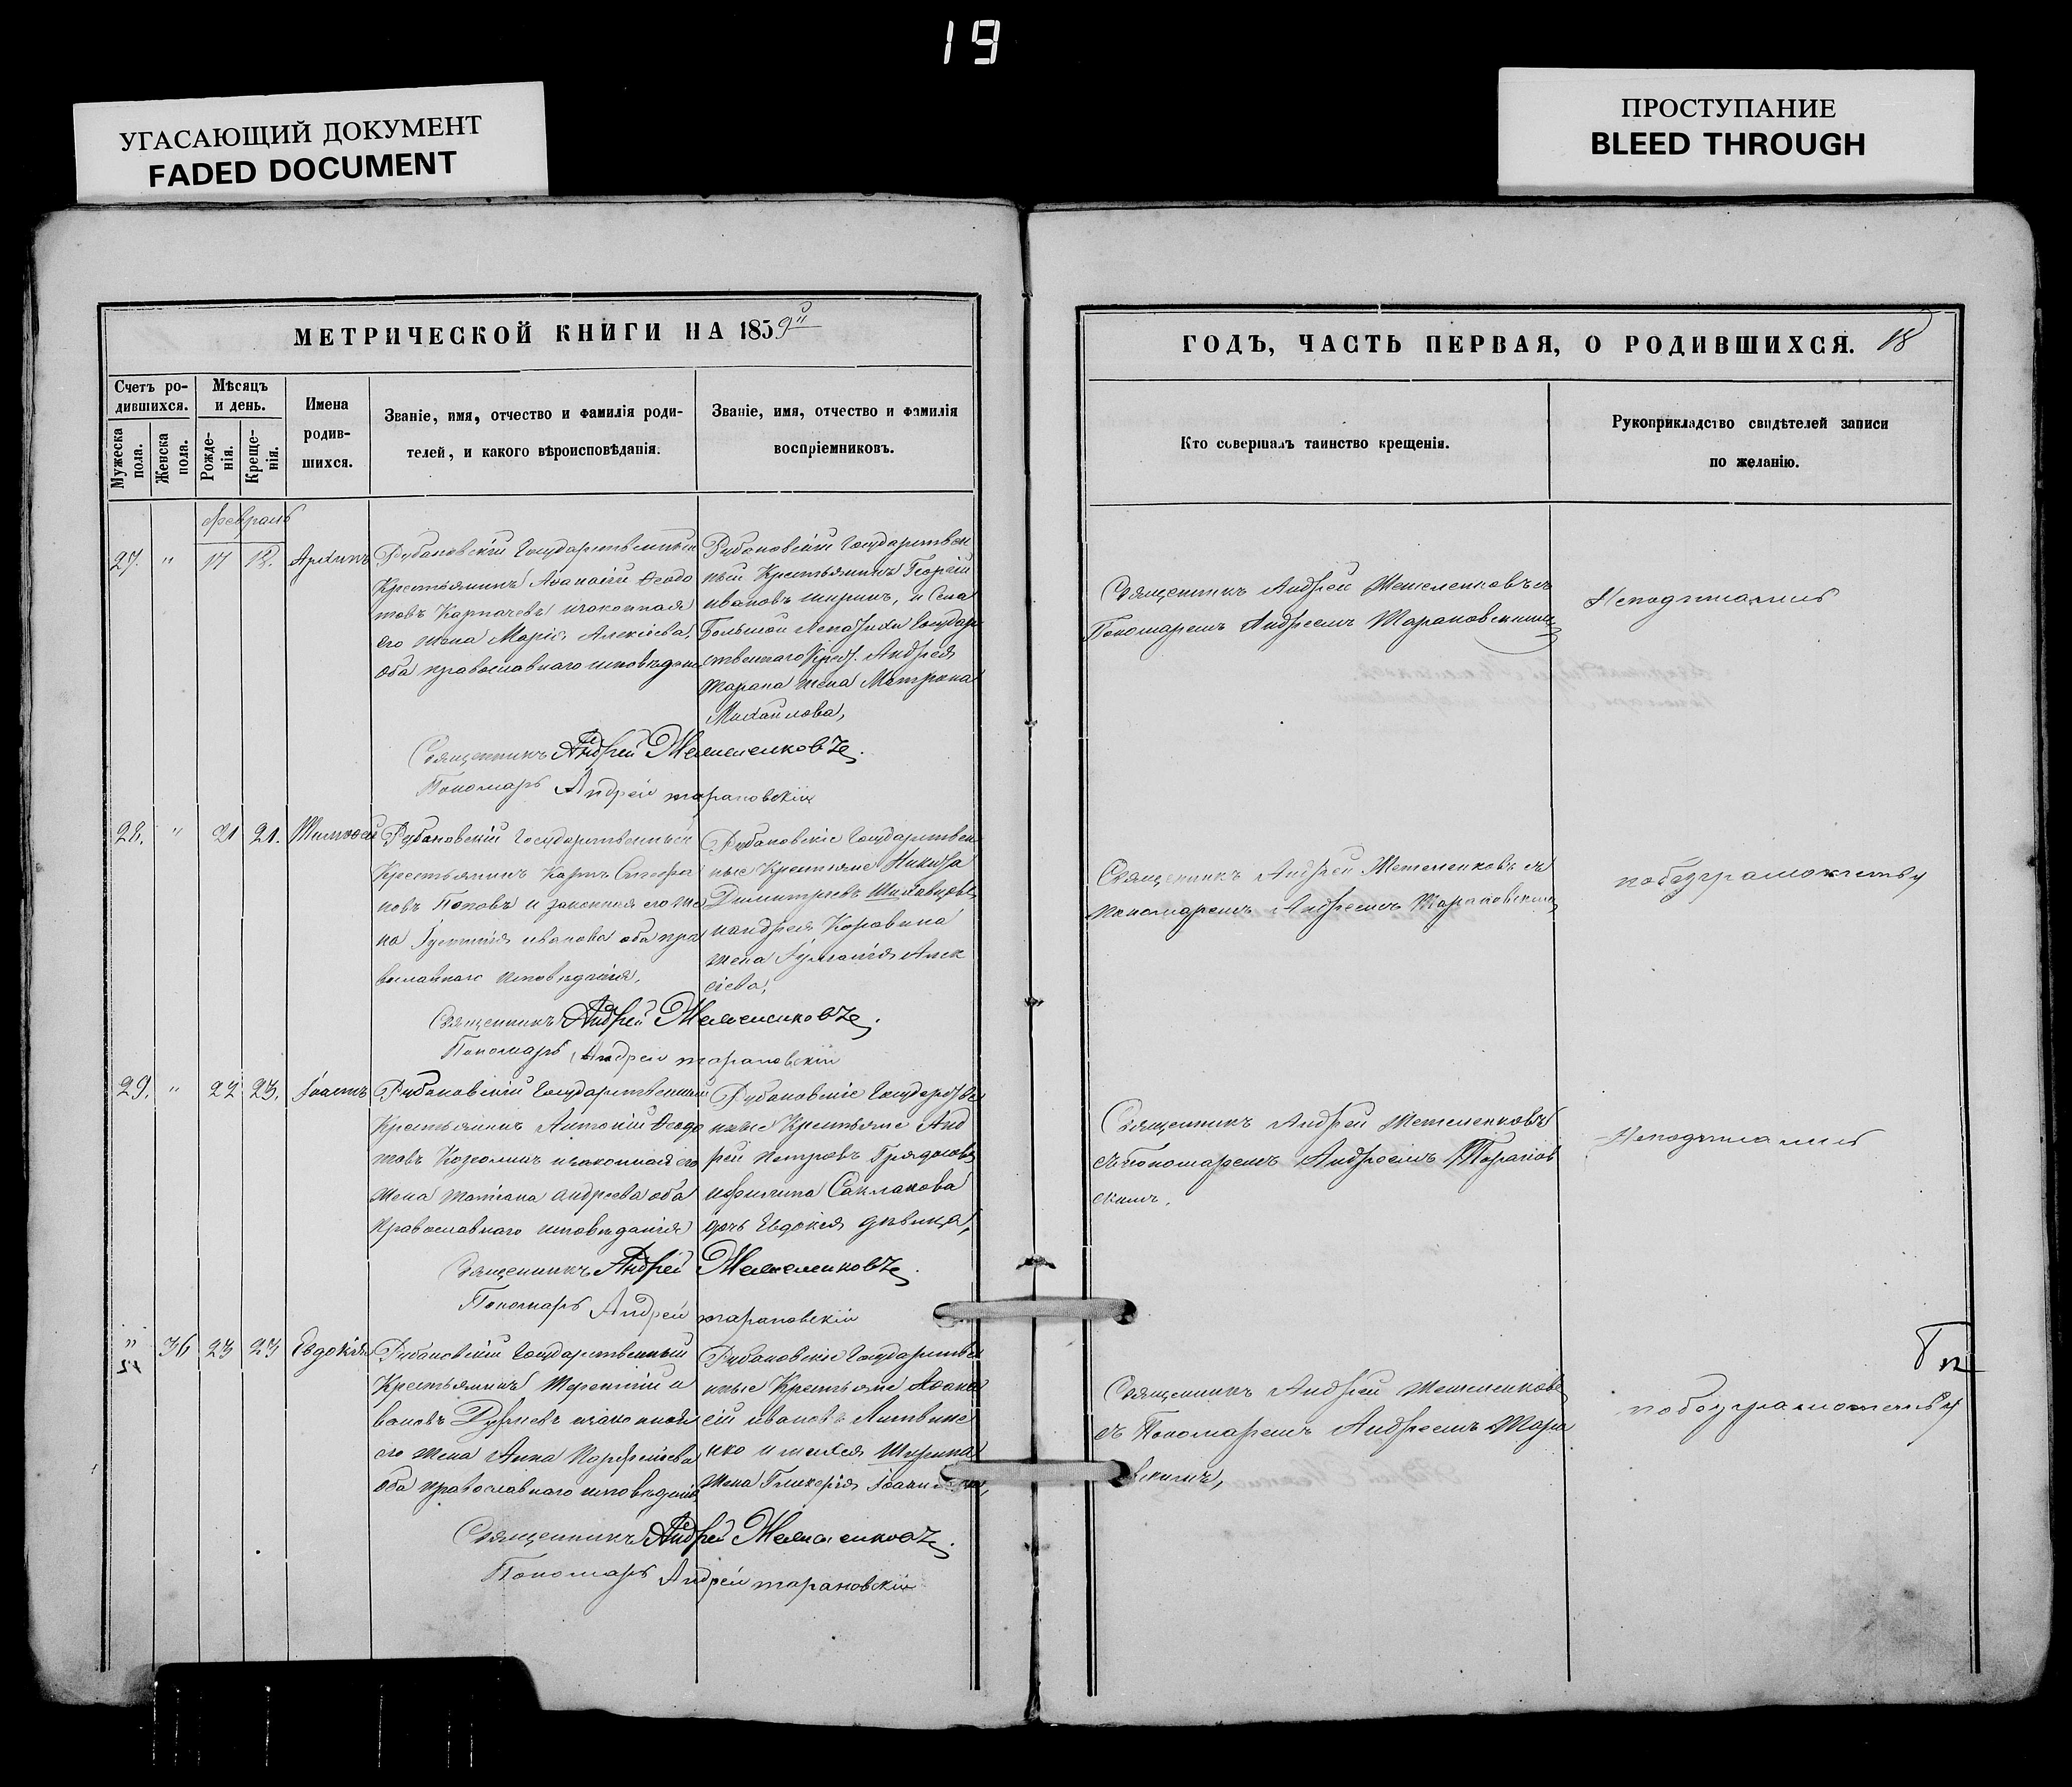 19
УГАСАЮЩИЙ ДОКУМЕНТ
FADED DOCUMENT
ПРОСТУПАНИЕ
BLEED THROUGH
МЕТРИЧЕСКОЙ КНИГИ НА 1859й
Счетъ ро-
дившихся.
Мужеска
пола.
Женска
пола.
Мѣсяцъ
и день.
Рожде-
нія.
Креще-
нія.
Имена
родив-
шихся.
Званіе, имя, отчество и фамилія роди-
телей, и какого вѣроисповѣданія.
Званіе, имя, отчество и фамилія
воспріемниковъ.
февраль
27. " 17 18. Архипъ
Рубановскій Государственный
Крестьянинъ Аѳанасій Ѳеодо
товъ Карпачевъ изаконная
его жена Марія Алексіева,
оба православнаго исповѣдан
Рубановскій Государствен
ный Крестьянинъ Георгій
ивановъ ширинъ, и Села
Большой Лепатихи Государ
ственнаго Крест. Андрея
Тарана жена Матрона
Михайлова,
Священникъ Андрей Метеленковъ.
Пономарь Андрей тарановскій
28. " 21 21. Тимоѳей
Рубановскій Государственный
Крестьянинъ Карпъ Стефа
новъ Поповъ и законная его же
на Іустинія иванова оба пра
вославнаго исповѣданія,
Рубановскіе Государствен
ные Крестьяне Никита
Димитріевъ
иандрея Коровина
жена Алек
сіева,
Священникъ Андрей Метеленковъ.
Пономарь Андрей тарановскій
29. " 22 23. Іоаннъ
Рубановскій Государственный
Крестьянинъ Антоній Ѳеодо
товъ изаконная его
жена татіана андреева оба
православнаго исповѣданія
Рубановскіе Государстве
нные Крестьяне Анд
рей Петровъ
ифилипа Саклакова
дочь Евдокія дѣвица,
Священникъ Андрей Метеленковъ.
Пономарь Андрей тарановскій
" 36 23 23 Евдокія
Рубановскій Государственный
Крестьянинъ Терентій и
вановъ изаконная
его жена Анна Парфеніева
оба православнаго исповѣданія
Рубановскіе Государстве
нные Крестьяне Аѳана
сій ивановъ Литвине
нко и Ширина
жена Гликерія
Священникъ Андрей Метеленковъ.
Пономарь Андрей тарановскій
ГОДЪ, ЧАСТЬ ПЕРВАЯ, О РОДИВШИХСЯ. 18
Кто совершалъ таинство крещенія.
Рукоприкладство свидѣтелей записи
по желанію.
Священникъ Андрей Метеленковъ съ
Пономаремъ Андреемъ Тарановскимъ
Неподписались
Священникъ Андрей Метеленковъ съ
пономаремъ Андреемъ Тарановскимъ
побезграмотству
Священникъ Андрей Метеленковъ
съ Пономаремъ Андреемъ Таранов
скимъ.
Неподписались
Священникъ Андрей Метеленковъ
съ Пономаремъ Андреемъ Тара
вскимъ,
побезграмотству